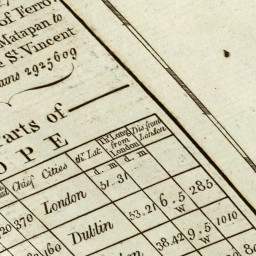 of Ferro
Matapan to
St. Vincent
2925609
arts of
OPE
Chief Cities th. Lat. Long. from London Dis. from London
d. m. d. m.
370 London 51.31
160 Dublin 53.21 6.5 w 285
38.42 9.5 w 1010